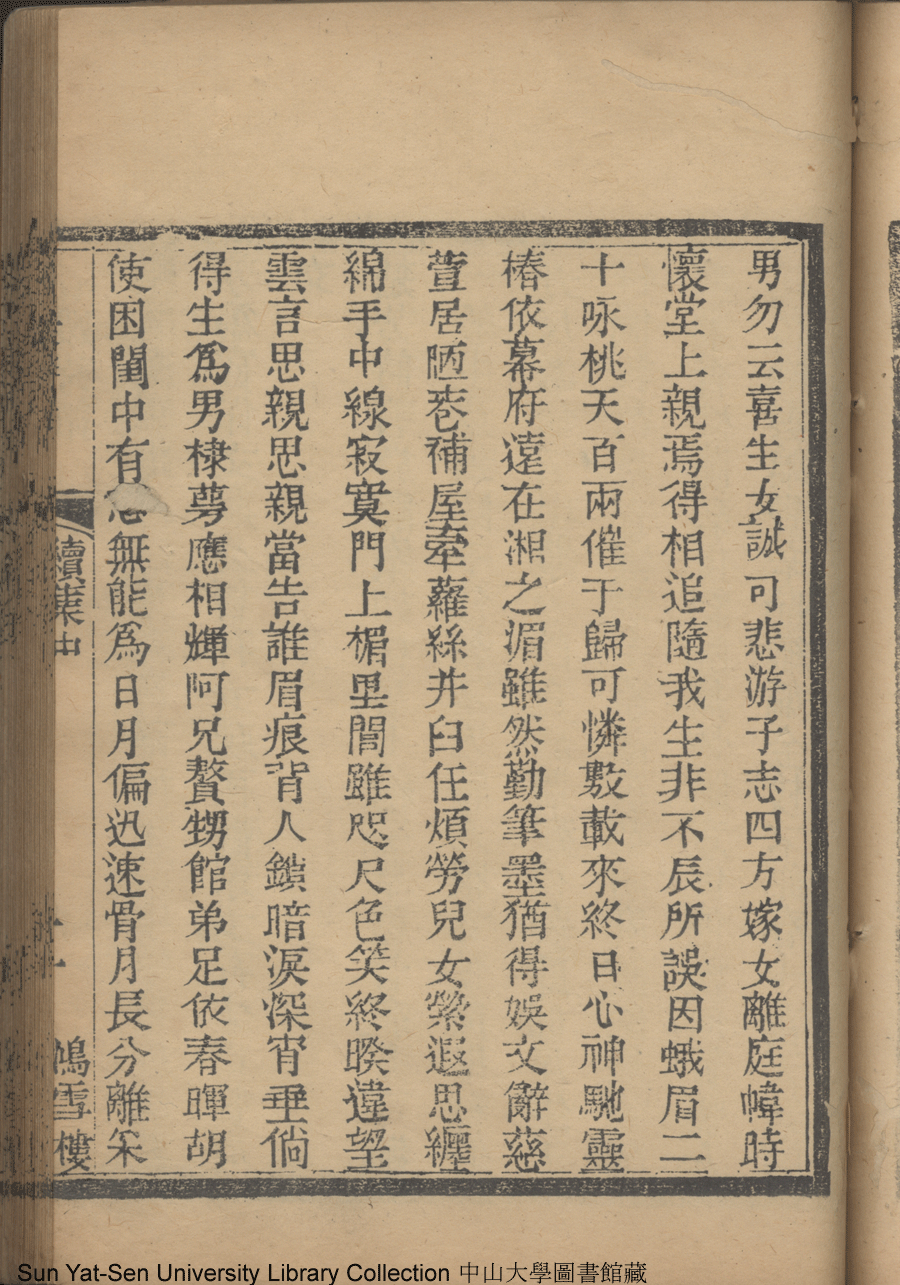 男勿云喜生女誠可悲游子志四方嫁女離庭幃時
懷堂上親焉得相追隨我生非不辰所誤因蛾眉二
十咏桃夭百兩催于歸可憐數載來終日心神馳靈
椿依幕府遠在湘之湄雖然勤筆墨猶得娛文辭慈
萱居陋巷補屋牽蘿絲井臼任煩勞兒女縈遐思纏
綿手中線寂寞門上楣里閭雖咫尺色笑終暌違望
雲言思親思親當告誰眉痕背人鎖暗淚深宵垂倘
得生爲男棣萼應相輝阿兄贅甥館弟足依春暉胡
使困閨中有志無能爲日月偏迅速骨月長分離采
續集中
十一
鴻雪樓
Sun Yat-Sen University Library Collection 中山大學圖書館藏